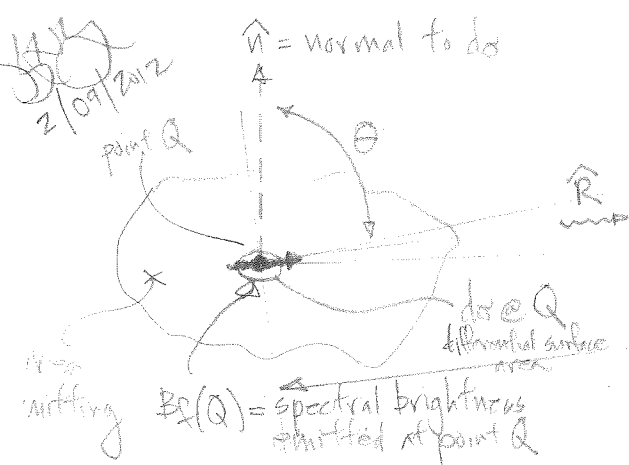 2/09/2012
n̂ = normal to dσ
point Q
θ
R̂
dσ @ Q
differential surface
area
emitting
B_f(Q) = spectral brightness
emitted at point Q